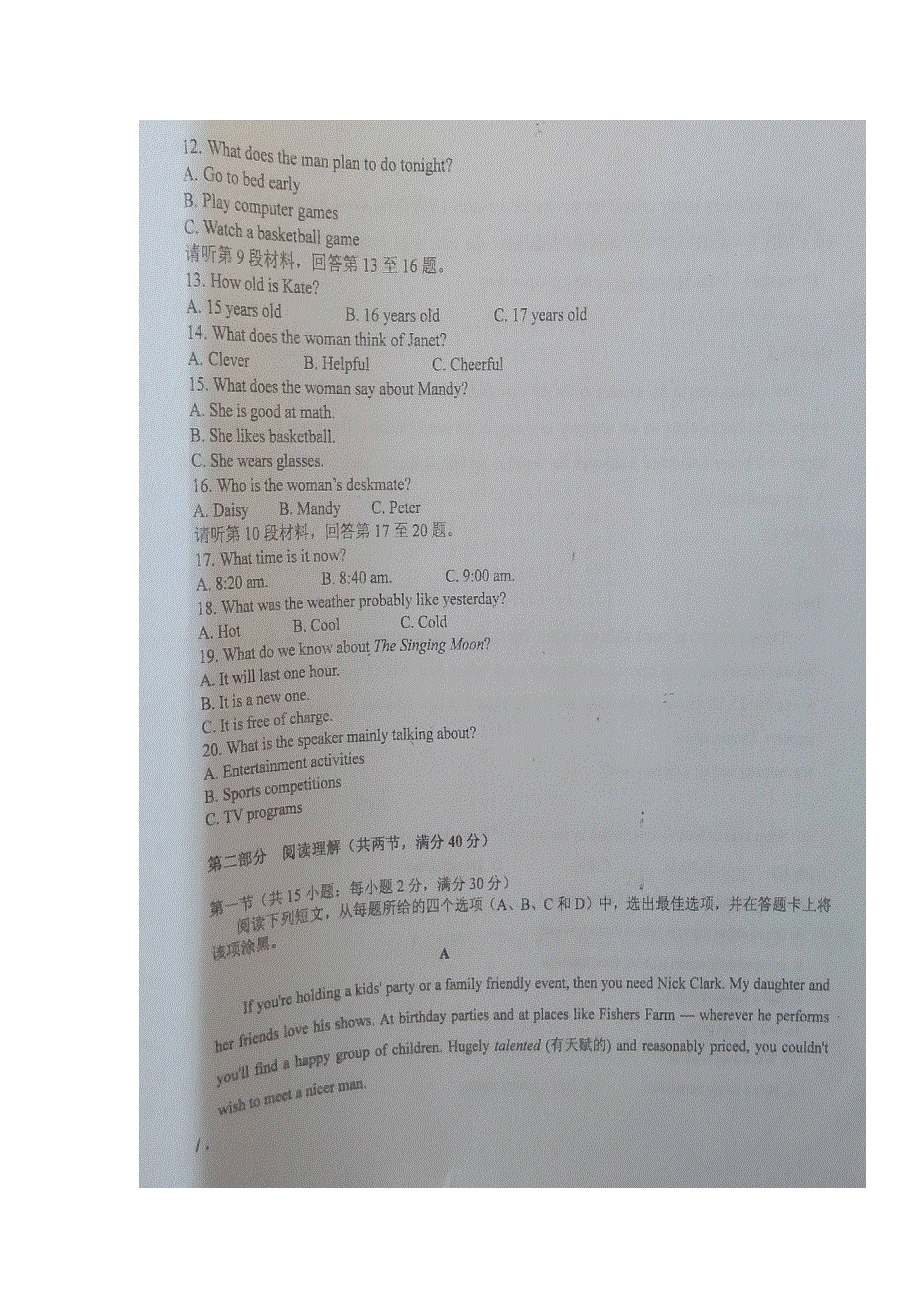 12. What does the man plan to do tonight?
A. Go to bed early
B. Play computer games
C. Watch a basketball game
请听第 9 段材料，回答第 13 至 16 题。
13. How old is Kate?
A. 15 years old B. 16 years old C. 17 years old
14. What does the woman think of Janet?
A. Clever B. Helpful C. Cheerful
15. What does the woman say about Mandy?
A. She is good at math.
B. She likes basketball.
C. She wears glasses.
16. Who is the woman's deskmate?
A. Daisy B. Mandy C. Peter
请听第 10 段材料，回答第 17 至 20 题。
17. What time is it now?
A. 8:20 am. B. 8:40 am. C. 9:00 am.
18. What was the weather probably like yesterday?
A. Hot B. Cool C. Cold
19. What do we know about The Singing Moon?
A. It will last one hour.
B. It is a new one.
C. It is free of charge.
20. What is the speaker mainly talking about?
A. Entertainment activities
B. Sports competitions
C. TV programs
第二部分 阅读理解（共两节，满分 40 分）
第一节（共 15 小题；每小题 2 分，满分 30 分）
阅读下列短文，从每题所给的四个选项（A、B、C 和 D）中，选出最佳选项，并在答题卡上将
该项涂黑。
A
If you're holding a kids' party or a family friendly event, then you need Nick Clark. My daughter and
her friends love his shows. At birthday parties and at places like Fishers Farm — wherever he performs
you'll find a happy group of children. Hugely talented (有天赋的) and reasonably priced, you couldn't
wish to meet a nicer man.